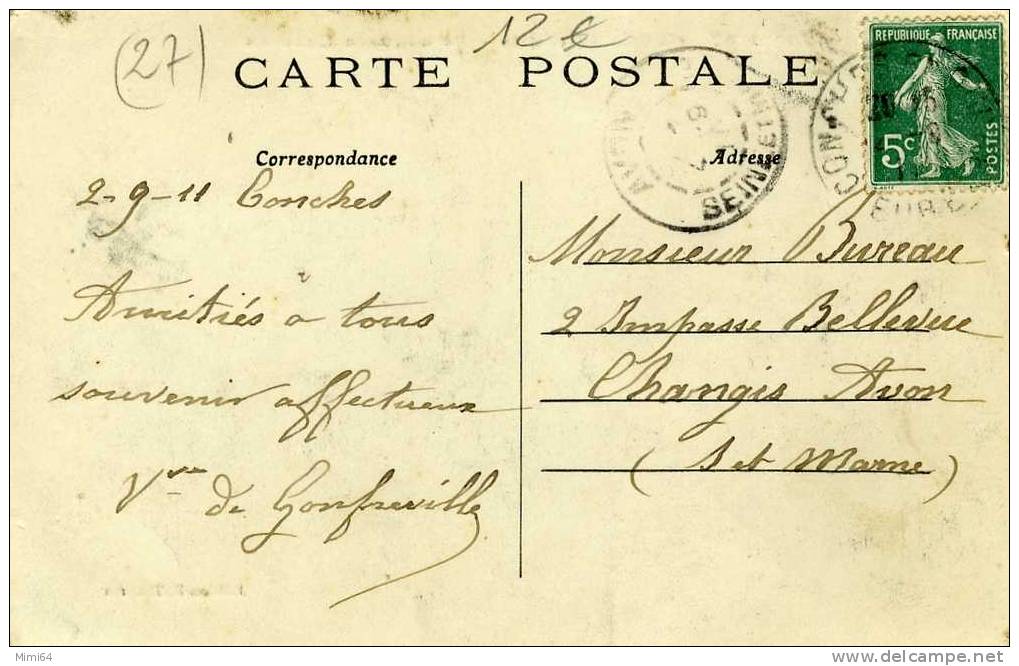 (27)
12€
CARTE POSTALE
RÉPUBLIQUE FRANÇAISE
5c
POSTES
Correspondance
Adresse
SEINE ET M
CONCHES
SUR
2-9-11 Conches
Amitiés a tous
souvenir affectueux
Vve de Gonfreville
Monsieur Bureau
2 Impasse Bellevue
Changis Avon
(S et Marne)
Mimi64
delcampe.net